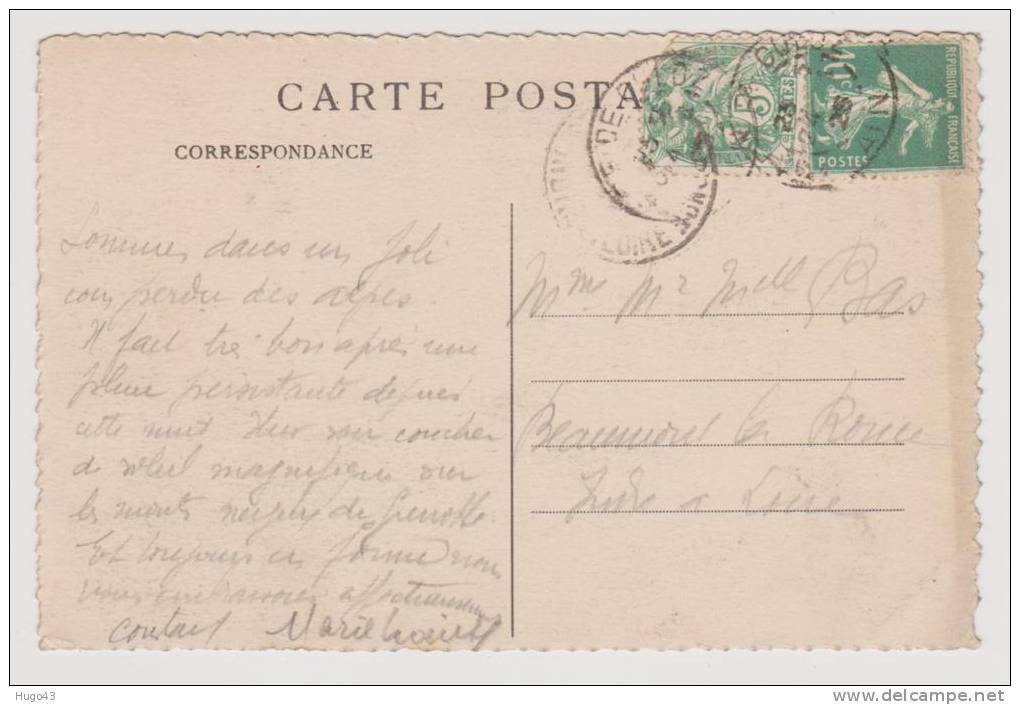 CARTE POSTA
CORRESPONDANCE
10c
REPUBLIQUE FRANÇAISE
POSTES
5
AIN
LOIRE
Sommes dans un joli
coin perdu des alpes.
Il fait très bon après une
pluie persistante depuis
cette nuit Hier soir coucher
de soleil magnifique sur
les monts neigeux de Grenoble
Et toujours en forme nous
vous
Marie
Mme Mr Mell Bas
Beaumont la Ronce
Indre et Loire
Hugo43
delcampe.net